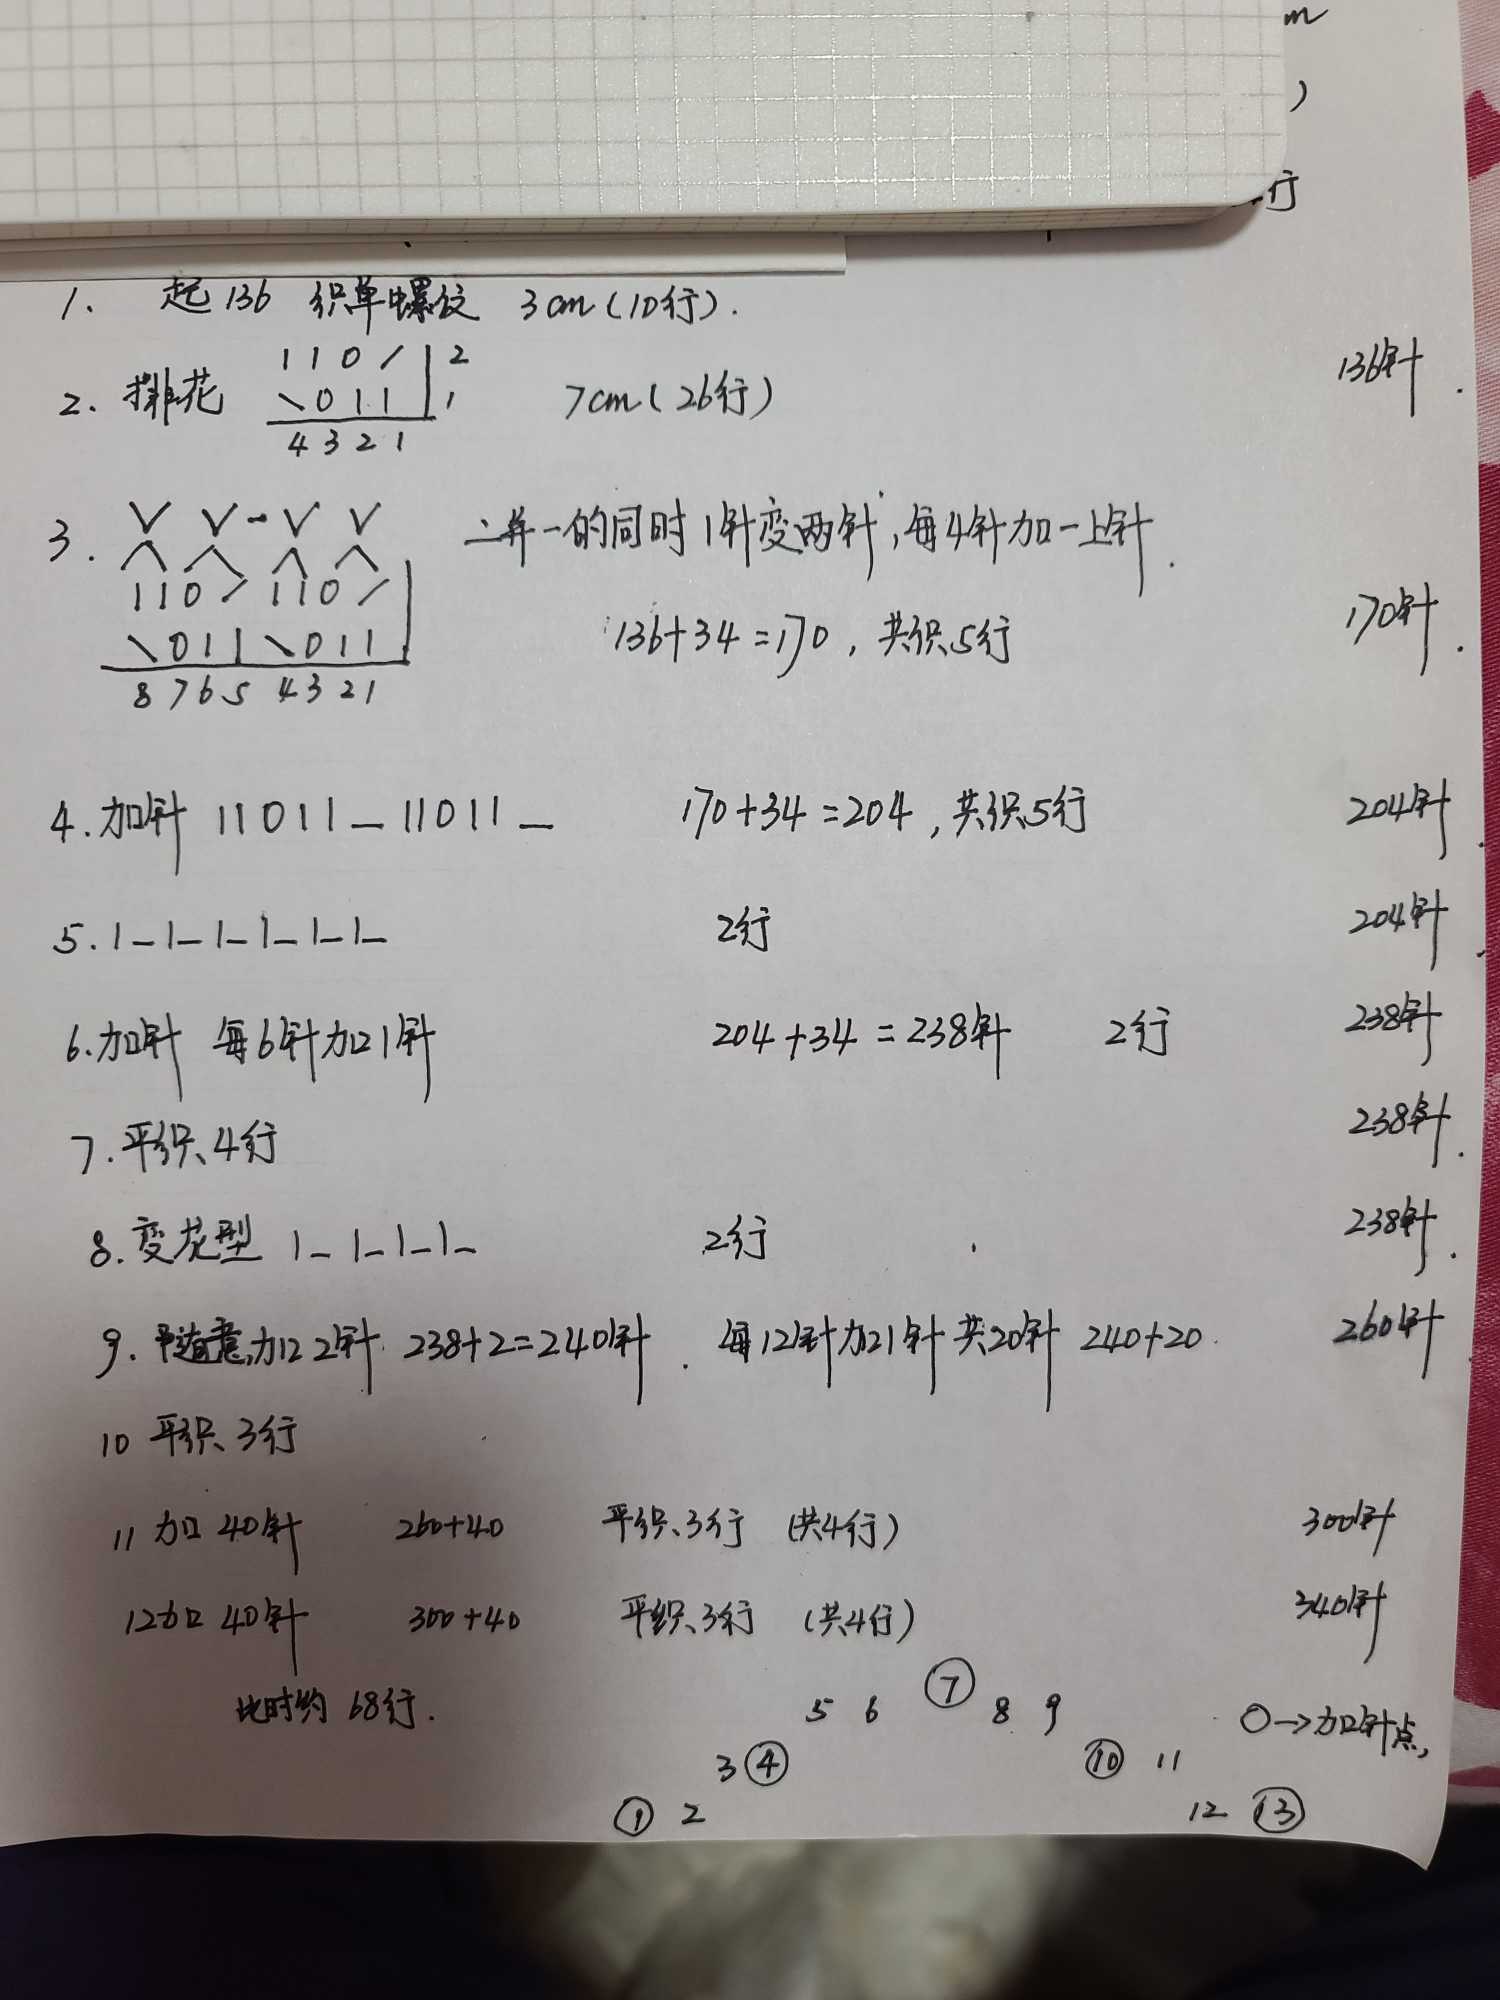 m
)
行
1. 起136 织单螺纹 3cm(10行).
2. 排花 7cm(26行) 136针.
1 1 0 / 2
\ 0 1 1 1
4 3 2 1
3. V V - V V
二并一的同时1针变两针,每4针加一上针.
∧ ∧ ∧ ∧
1 1 0 / 1 1 0 /
136+34=170,共织5行 170针.
\ 0 1 1 \ 0 1 1
8 7 6 5 4 3 2 1
4.加针 11011_11011_ 170+34=204,共织5行 204针.
5.1_1_1_1_1_1_ 2行 204针.
6.加针 每6针加1针 204+34=238针 2行 238针
7.平织4行 238针.
8.变花型 1_1_1_1_ 2行 238针.
9.随意加2针 238+2=240针. 每12针加1针共20针 240+20 260针
10 平织3行
11 加40针 260+40 平织3行 (共4行) 300针
12加40针 300+40 平织3行 (共4行) 340针
此时约68行.
5 6 ⑦ 8 9 ○→加针点,
3 ④ ⑩ 11
① 2 12 ⑬